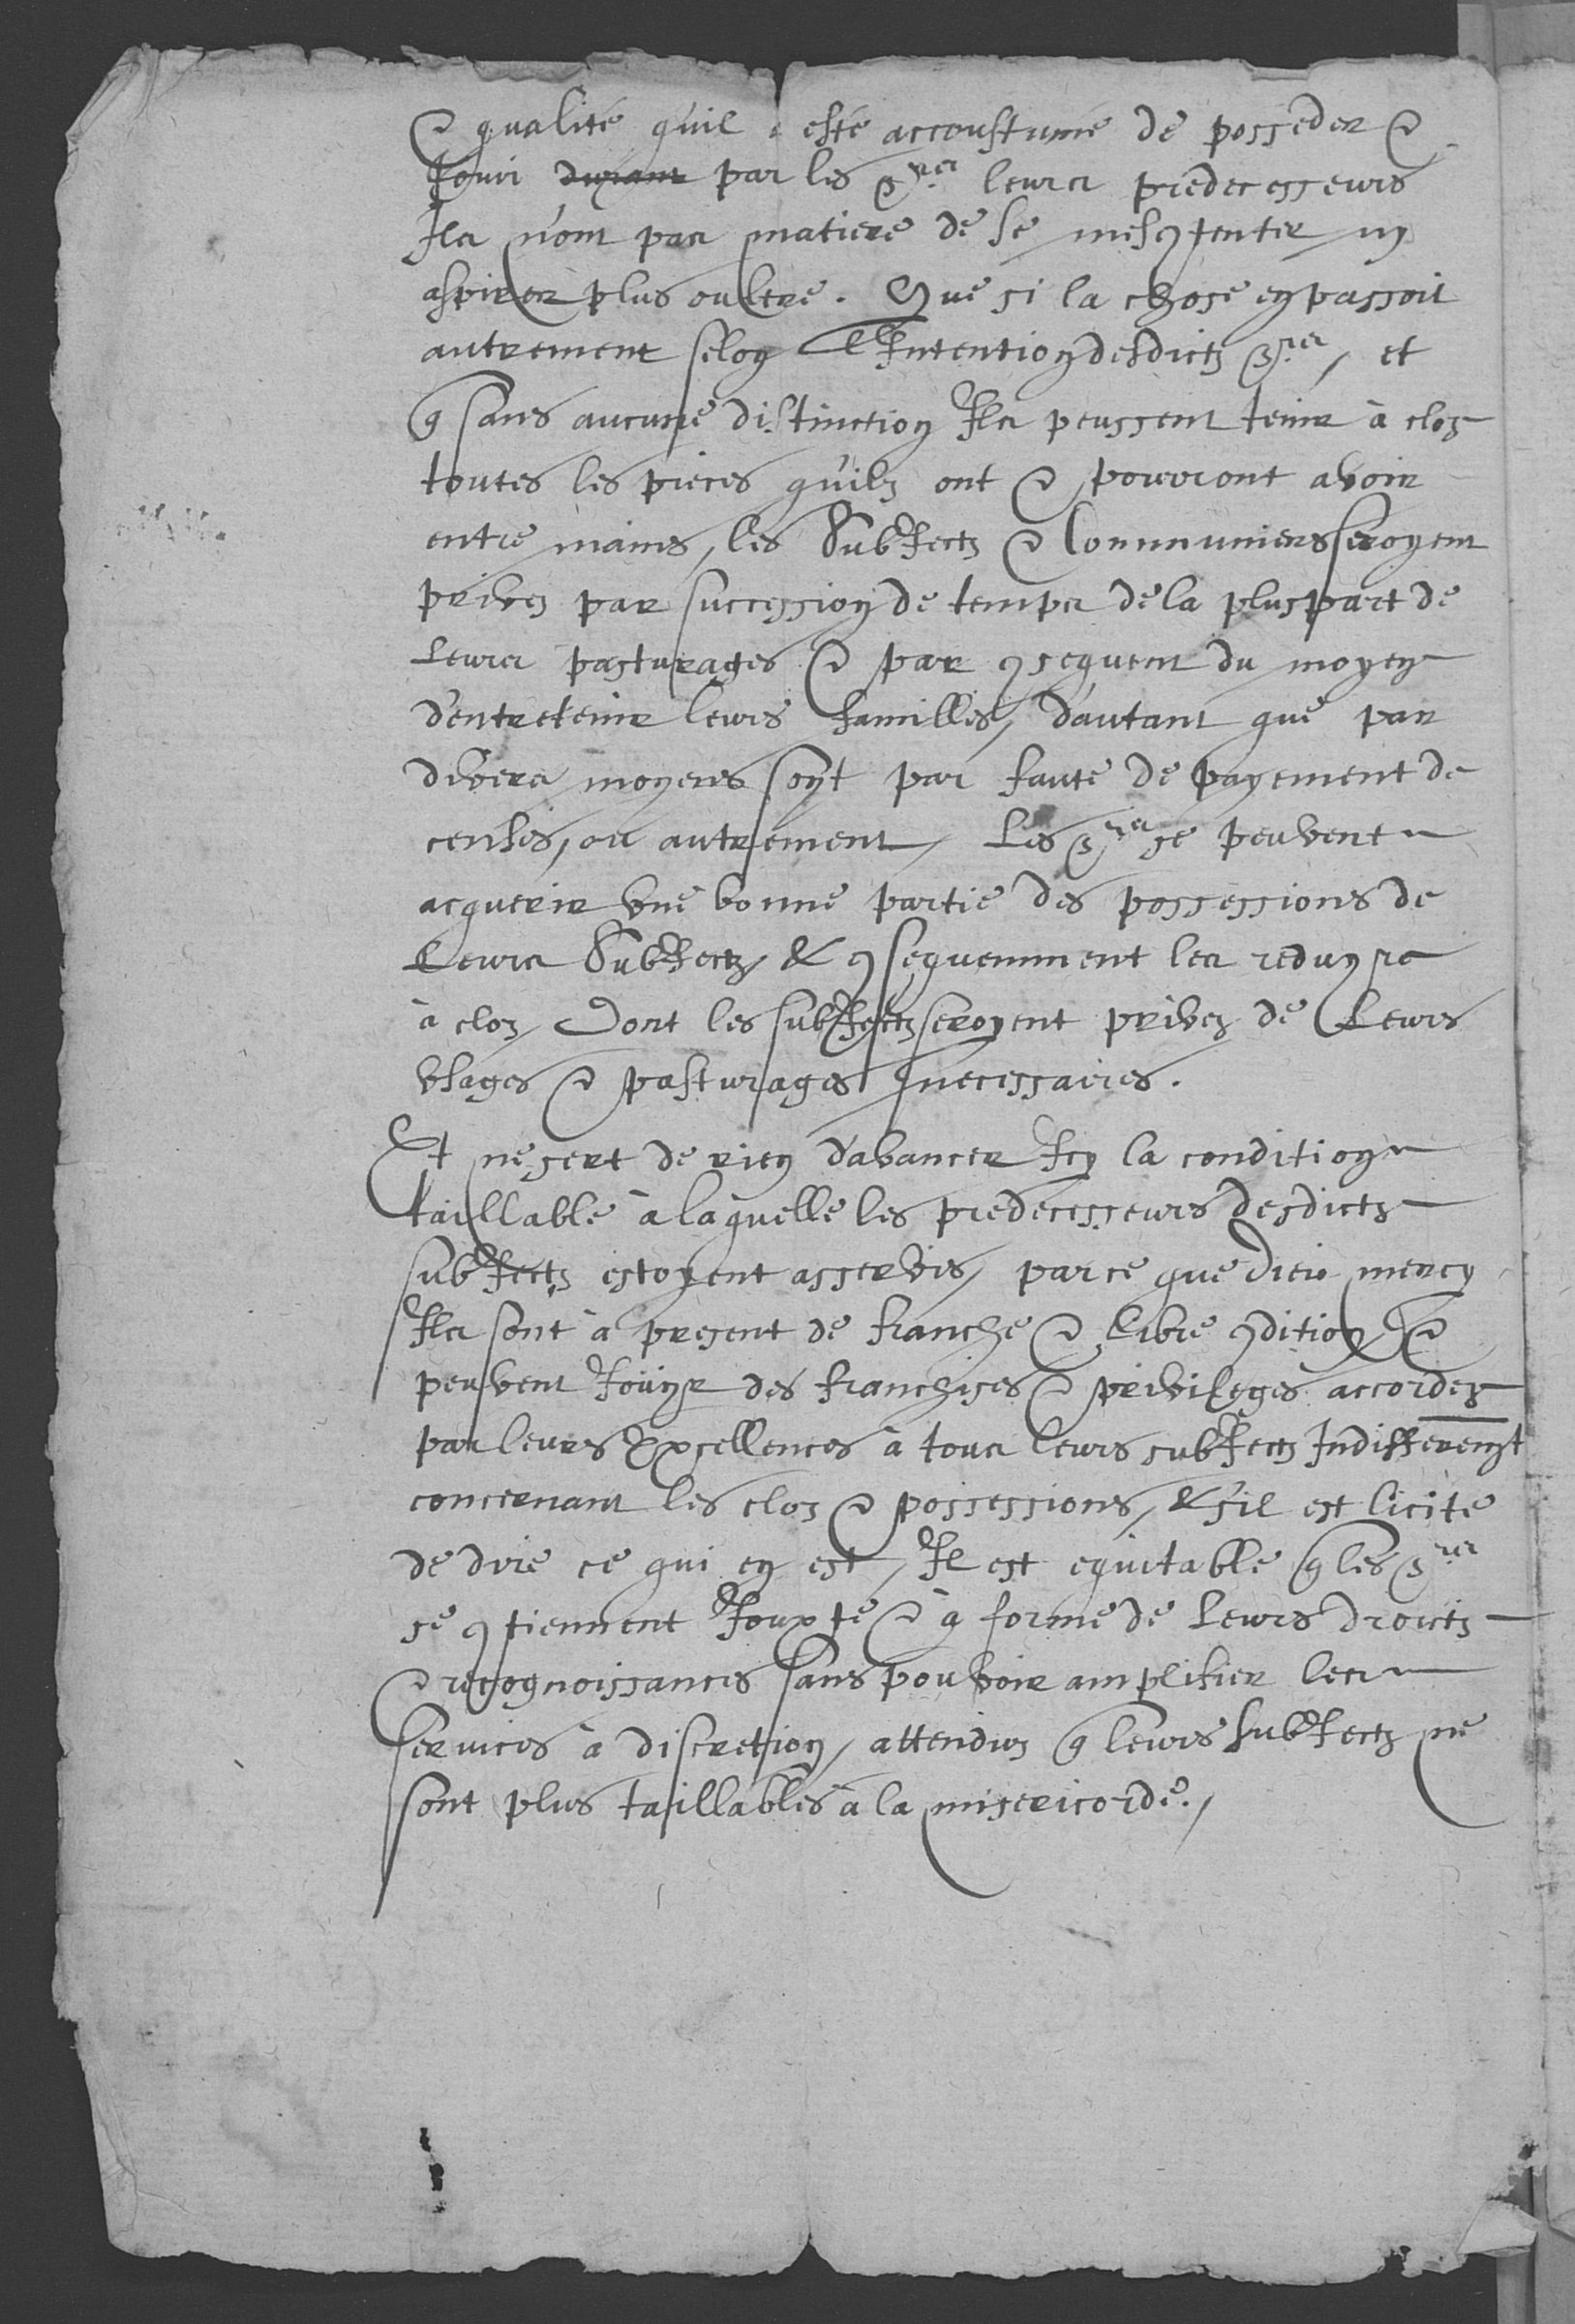 & qualité quil a esté accoustumé de posseder &
Jouir durant par les Srs leurs predecesseurs
Ilz n'ont pas matiere de se mescõtenter ny
aspirer plus oultre. Que si la chose en passoit
autrement selon L'Intention desdictz Srs, et
q̃ sans aucune distinction Ilz peussent tenir à cloz
toutes les pieces quilz ont & pourront avoir
entre mains, les Subiectz & Communiers seroyent
privez par succession de temps de la pluspart de
Leurs pasturages & par ꝯsequent du moyen
d'entretenir leurs familles, d'autant que par
divers moyens soyt par faute de payement de
censes, ou autrement, Les Srs se peuvent
acquerir une bonne partie des possessions de
Leurs Subiectz, & ꝯsequemment les reduyre
à cloz, Dont les subiectz seroyent privez de Leurs
usages & pasturages necessaires.
Et ne sert de rien d'avancer Icy la condition
taillable à laquelle les predecesseurs desdictz
subiectz estoyent asservis, parce que Dieu mercy
Ilz sont à present de franche & libre ꝯdition &
peuvent Jouyr des franchises & privileges accordez
par leurs Excellences à tous leurs subiectz Indifferemt
concernant les cloz & possessions, & s'il est licite
de dire ce qui en est, Il est equitable q̃ les Srs
se ꝯtiennent Jouxte & à forme de Leurs droictz
& recognoissances sans pouvoir amplifier les
services à discretion, attenduz q̃ leurs Subiectz ne
sont plus taillables à la misericorde.